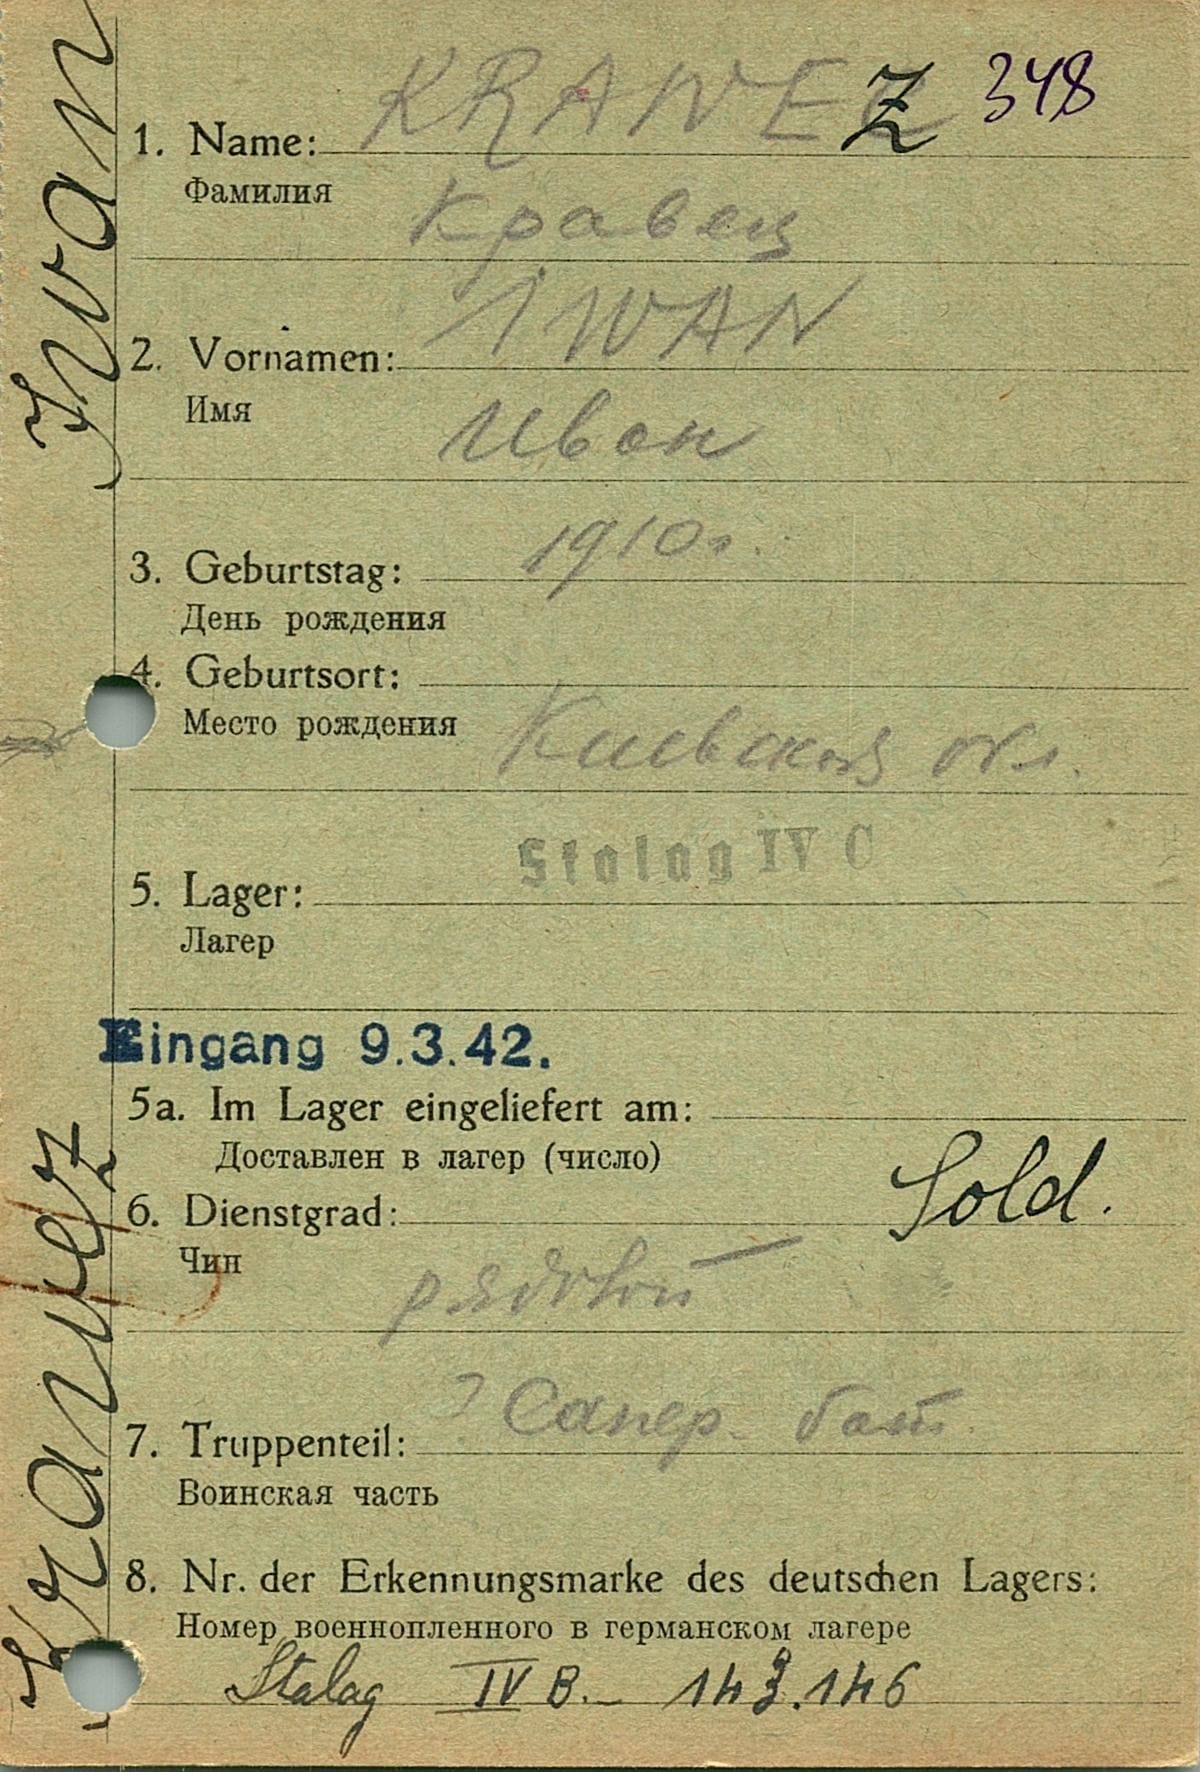 348
1. Name: KRAWEZ
Фамилия
Кравец
2. Vornamen: IWAN
Имя
Иван
3. Geburtstag: 1910 г.
День рождения
4. Geburtsort:
Место рождения Киевской обл.
Stalag IV C
5. Lager:
Лагер
Eingang 9.3.42.
5a. Im Lager eingeliefert am:
Доставлен в лагер (число)
6. Dienstgrad: Sold.
Чин
рядовой
7. Truppenteil: ? Сапер. бат.
Воинская часть
8. Nr. der Erkennungsmarke des deutschen Lagers:
Номер военнопленного в германском лагере
Stalag IV B. - 143.146
Krawez, Iwan